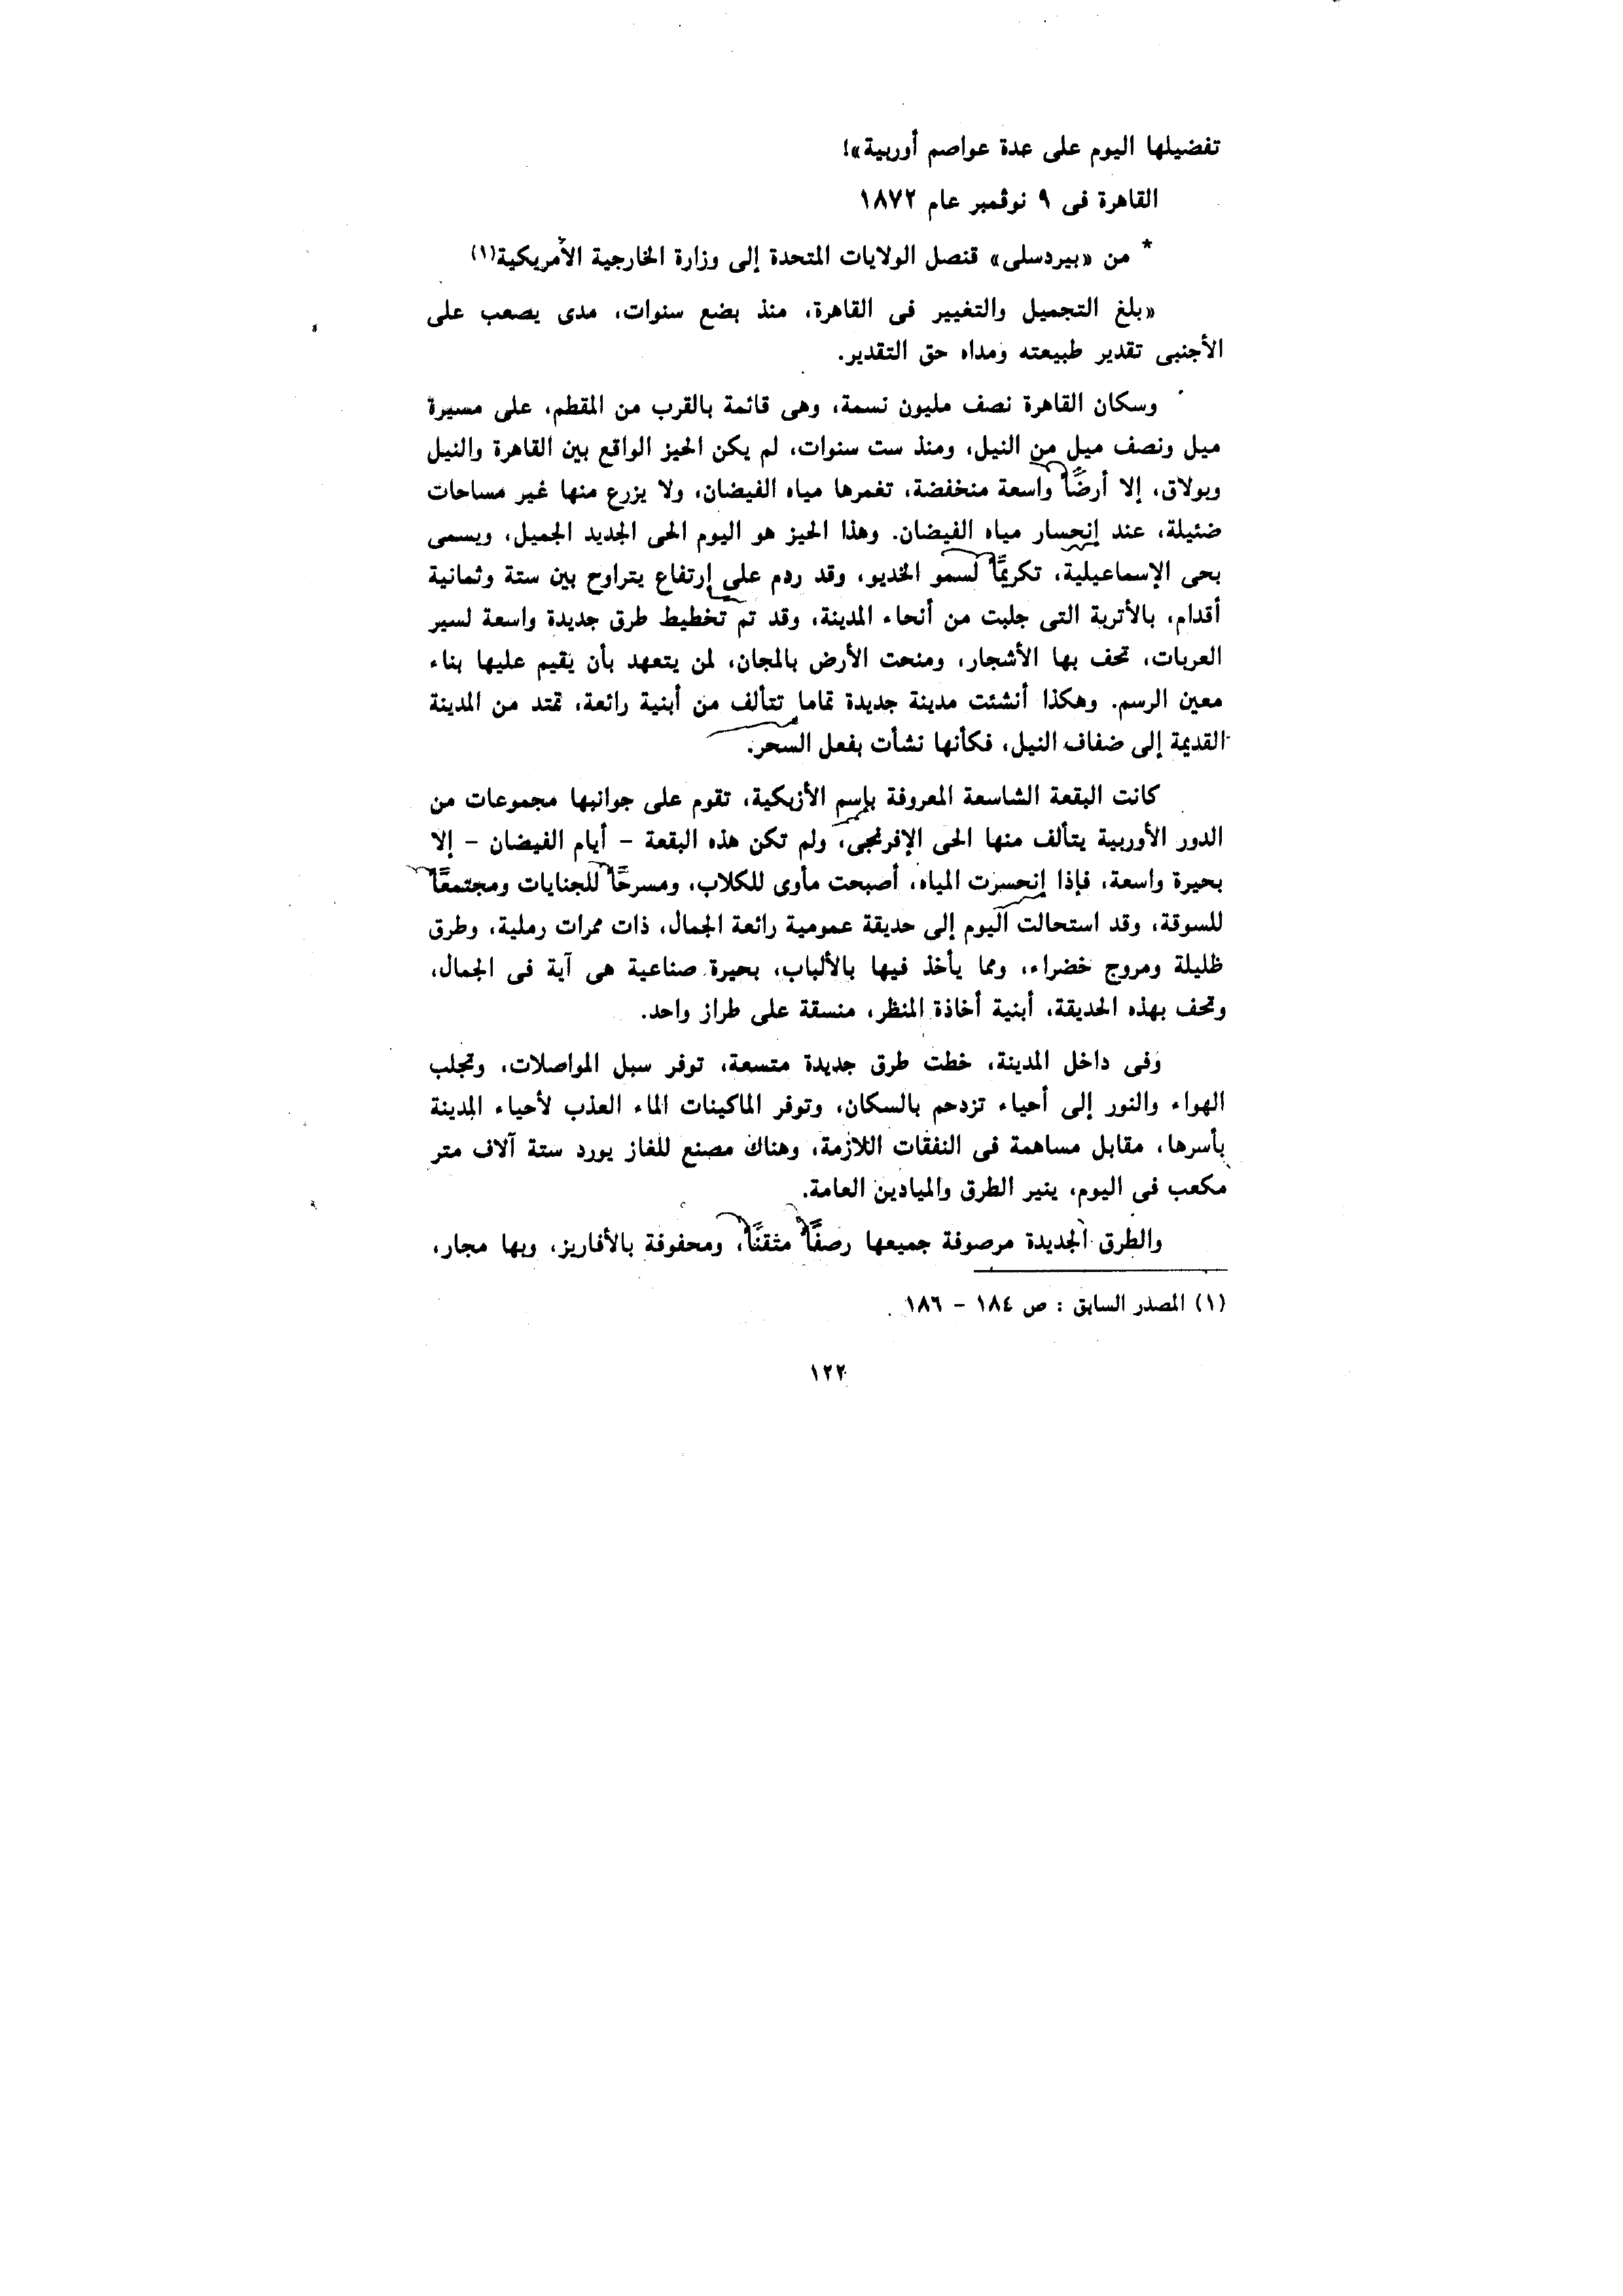 تفضيلها اليوم على عدة عواصم أوربية»!
القاهرة فى ٩ نوڤمبر عام ١٨٧٢
* من «بيردسلى» قنصل الولايات المتحدة إلى وزارة الخارجية الأمريكية(١)
«بلغ التجميل والتغيير فى القاهرة، منذ بضع سنوات، مدى يصعب على
الأجنبى تقدير طبيعته ومداه حق التقدير.
وسكان القاهرة نصف مليون نسمة، وهى قائمة بالقرب من المقطم، على مسيرة
ميل ونصف ميل من النيل، ومنذ ست سنوات، لم يكن الحيز الواقع بين القاهرة والنيل
وبولاق، إلا أرضًا واسعة منخفضة، تغمرها مياه الفيضان، ولا يزرع منها غير مساحات
ضئيلة، عند إنحسار مياه الفيضان. وهذا الحيز هو اليوم الحى الجديد الجميل، ويسمى
بحى الإسماعيلية، تكريمًا لسمو الخديو، وقد ردم على إرتفاع يتراوح بين ستة وثمانية
أقدام، بالأتربة التى جلبت من أنحاء المدينة، وقد تم تخطيط طرق جديدة واسعة لسير
العربات، تحف بها الأشجار، ومنحت الأرض بالمجان، لمن يتعهد بأن يقيم عليها بناء
معين الرسم. وهكذا أنشئت مدينة جديدة تماما تتألف من أبنية رائعة، تمتد من المدينة
القديمة إلى ضفاف النيل، فكأنها نشأت بفعل السحر.
كانت البقعة الشاسعة المعروفة بإسم الأزبكية، تقوم على جوانبها مجموعات من
الدور الأوربية يتألف منها الحى الإفرنجى، ولم تكن هذه البقعة - أيام الفيضان - إلا
بحيرة واسعة، فإذا إنحسرت المياه، أصبحت مأوى للكلاب، ومسرحًا للجنايات ومجتمعًا
للسوقة، وقد استحالت اليوم إلى حديقة عمومية رائعة الجمال، ذات ممرات رملية، وطرق
ظليلة ومروج خضراء، ومما يأخذ فيها بالألباب، بحيرة صناعية هى آية فى الجمال،
وتحف بهذه الحديقة، أبنية أخاذة المنظر، منسقة على طراز واحد.
وفى داخل المدينة، خطت طرق جديدة متسعة، توفر سبل المواصلات، وتجلب
الهواء والنور إلى أحياء تزدحم بالسكان، وتوفر الماكينات الماء العذب لأحياء المدينة
بأسرها، مقابل مساهمة فى النفقات اللازمة، وهناك مصنع للغاز يورد ستة آلاف متر
مكعب فى اليوم، ينير الطرق والميادين العامة.
والطرق الجديدة مرصوفة جميعها رصفًا مثقنًا، ومحفوفة بالأفاريز، وبها مجار،
(١) المصدر السابق : ص ١٨٤ - ١٨٦ .
١٢٢